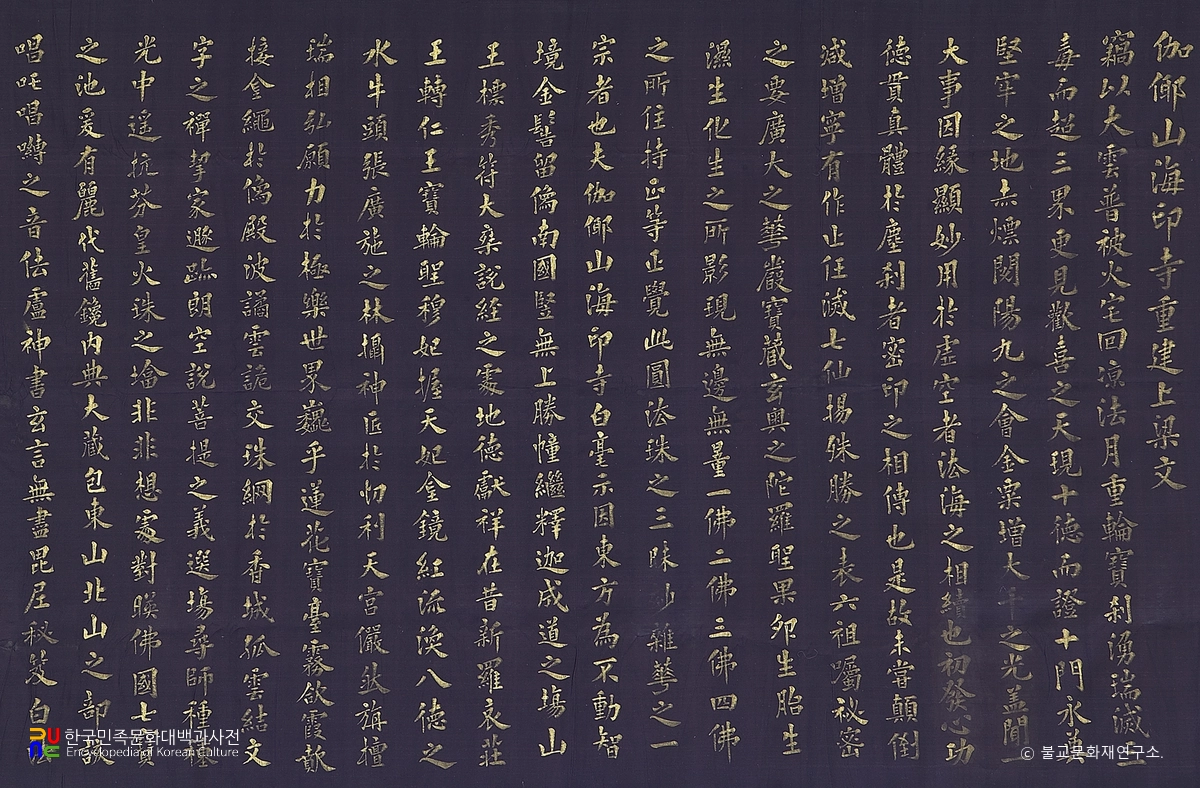 伽倻山海印寺重建上梁文
竊以大雲普被火宅回凉法月重輪寶刹湧瑞滅三
毒而超三果更見歡喜之天現十德而證十門永奠
堅牢之地赤熛閼陽九之會金粟增大年之光盖聞一
大事因緣顯妙用於虛空者法海之相續也初發心功
德貫真體於塵刹者密印之相傳也是故未嘗顛倒
減增寧有作止任滅七仙揚殊勝之表六祖囑秘密
之要廣大之華嚴寶藏玄奧之陀羅聖果卵生胎生
濕生化生之所影現無邊無量一佛二佛三佛四佛
之所住持正等正覺此圓法珠之三昧妙雜華之一
宗者也夫伽倻山海印寺白毫示因東方為不動智
境金髻留僞南國竪無上勝幢繼釋迦成道之場山
王標秀待大乘說經之處地德獻祥在昔新羅哀莊
王轉仁王寶輪聖穆妃握天妃金鏡紅流渙八德之
水牛頭張廣施之林攝神匠於忉利天宮儼然旃檀
瑞相弘願力於極樂世界巍乎蓮花寶臺霧歛霞歕
接金繩於僞殿波譎雲詭交珠網於香城孤雲結文
字之禪挈家遯跡朗空說菩提之義選場尋師種
光中遥抗芬皇火珠之塔非非想處對暎佛國七寶
之池爰有麗代舊鐫內典大藏包東山北山之部
唱吒唱囀之音佉盧神書玄言無盡毘尼秘笈白
한국민족문화대백과사전
Encyclopedia of Korean Culture
© 불교문화재연구소.